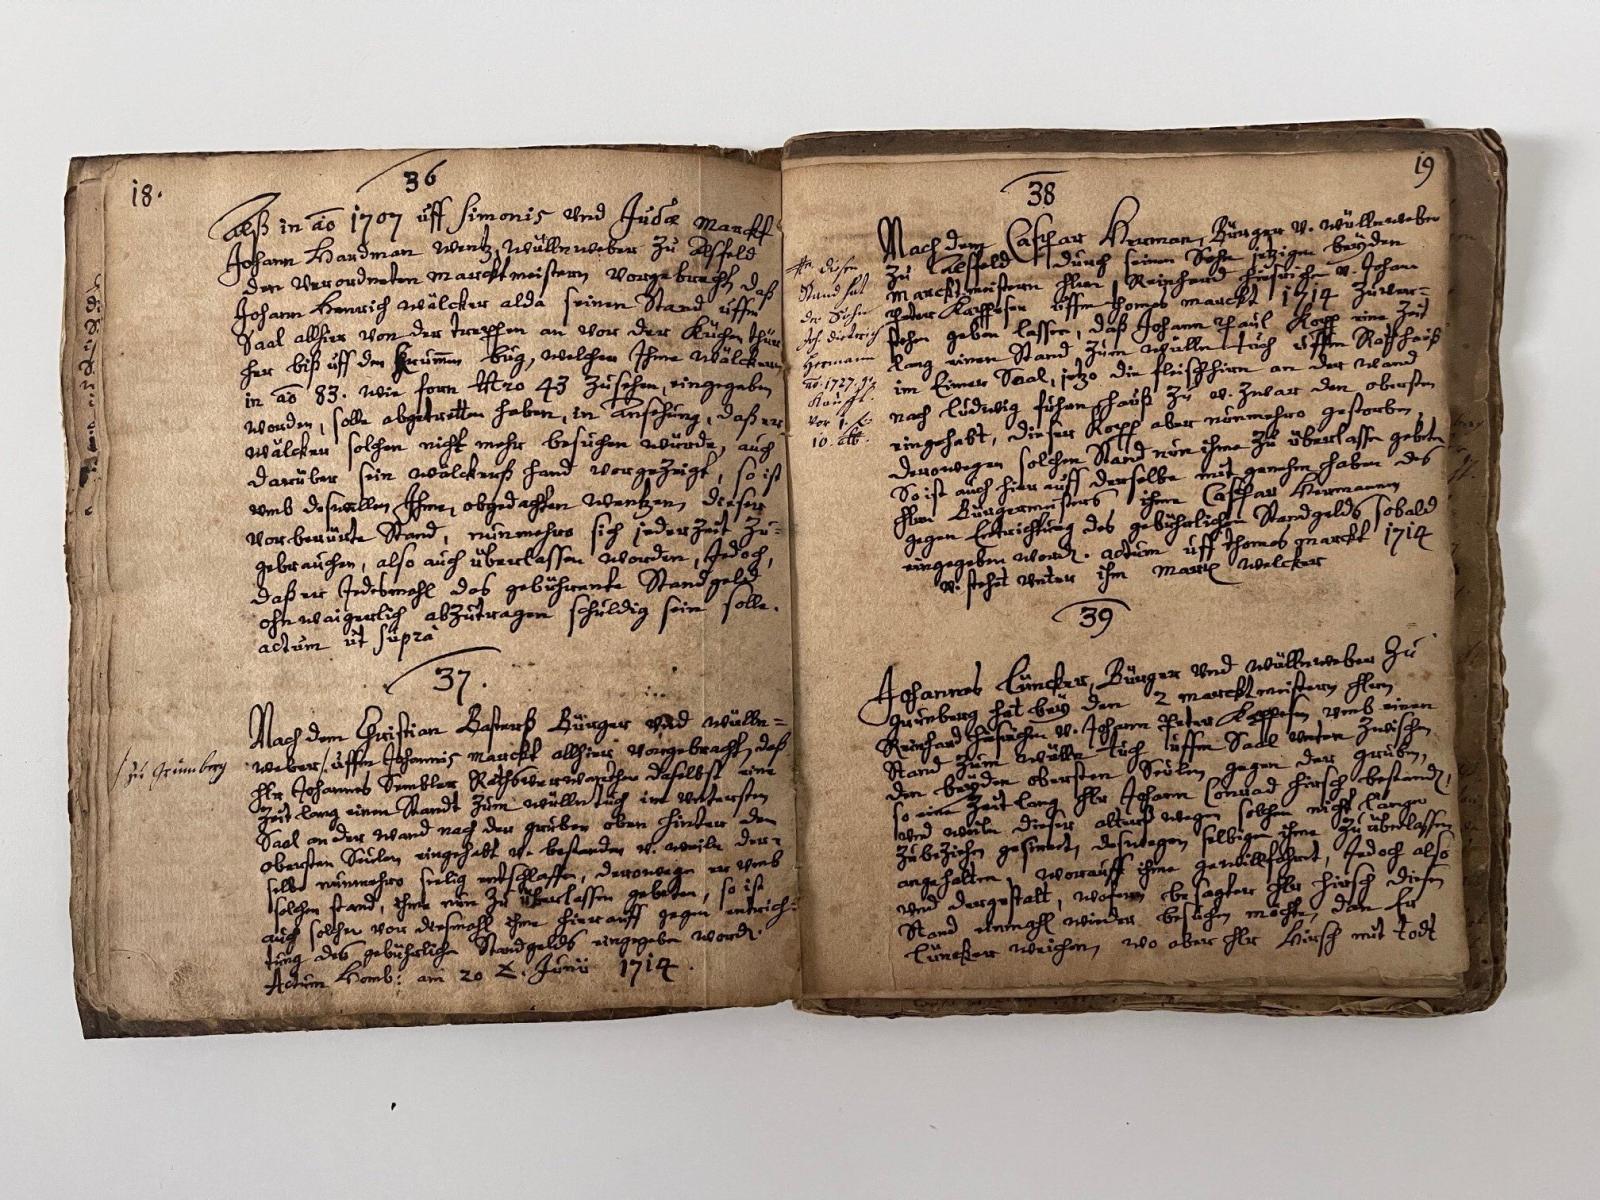 18.
36
Alß in ao 1707 uff Simonis und Judæ Marckt
Johann Hardman Wentz, Wüllnweber zu Alsfeld
den verordneten Marcktmeistern vorgebracht, daß
Johann Henrich Wälcker alda seinen Stand uffm
Saal alhier von der treppen an vor der Küchen thür
her biß uff den Krummen bug, welchen Ihme Wälckern
in ao 83. wie forn Nro 43 zusehen, eingegeben
worden, solle abgetretten haben, in ansehung, daß er
Wälcker solchen nicht mehr besuchen würde, auch
darüber sein Wälckerß hand vorgezeigt, so ist
umb deswillen Ihme, obgedachten Wentzen dieser
vorberürte Stand, nunmehro sich jederzeit zu=
gebrauchen, also auch überlassen worden, Jedoch,
daß er Jedesmahl das gebührente Standgeld
ohnwaigerlich abzutragen schuldig sein solle.
actum ut supra
37.
Nach dem Christian Basterß Bürger und Wülln=
weber /: uffm Johannis Marckt allhier vorgebracht, daß
/ zu Grünberg
Hr Johannes Sembler Rathsverwanther daselbst eine
Zeit lang einen Standt zum wüllntuch im untersten
Saal an der wand nach der gruben oben hinter der
obersten Seulen eingehabt v. bestanden v. weile der=
selbe nunmehro seelig entschlaffen, derowegen er umb
solchen stand, ihme nun zu überlassen gebeten, so ist
auch solcher vor diesmahl ihme hierauff gegen entrich=
tung des gebührlichen Standgelds eingegeben word.
Actum Homb: am 20 Junii 1714.
19
38
Nach dem Caspar Herman, Bürger v. Wüllnweber
zu Alsfeld durch seinen Sohn jetzigen beyden
Marcktmeistern Hrn Reinhard Hinrichen v. Johan
Peter Kappesen uffm Thomes marckt 1714 zuver=
stehen geben lassen, daß Johann Paul Kopp eine Zeit
lang einen Stand zum Wülln tuch uffm Rathhauß
im Einer Saal, jetzo die fleischhirn an der wand
nach Ludwig hauß zu v. zwar den obersten
eingehabt, dieser Kopp aber nunmehro gestorben,
derowegen solchen Stand nun ihme zu überlassen gebeten
So ist auch hierauff derselbe mit genehm haben des
Hrn Bürgermeisters ihme Caspar Hermann
gegen Entrichtung des gebührlichen Standgelds sobald
eingegeben word. actum uff Thomes marckt 1714
v. stehet unter ihm Marx Welcker
diesen
Stand hat
der Sohn
Joh. Dieterich
Hermann
ao. 1727
vor 1. f.
10.
39
Johannes Lüncker, Bürger und Wüllnweber zu
Grünberg hat bey den 2 marcktmeistern Hrn
Reinhard Hinrichen v. Johann Peter Kappesen umb einen
Stand zum wülln tuch uffm Saal unten zwischen
den beyden obersten Seulen gegen der gruben,
so eine Zeit lang Hr Johann Conrad Hirsch bestand,
und weile dieser alterß wegen solchen nicht länger
zubeziehn gesinnet, deswegen selbigen ihme zu überlassen
angehalten, worauff ihme gewillfahret, Jedoch also
und dergestalt, wofern besagter Hr Hirsch diesen
Stand einmahl wieder besuchen möchte, dan Er
Lüncker weichen, wo aber Hr Hirsch mit todt